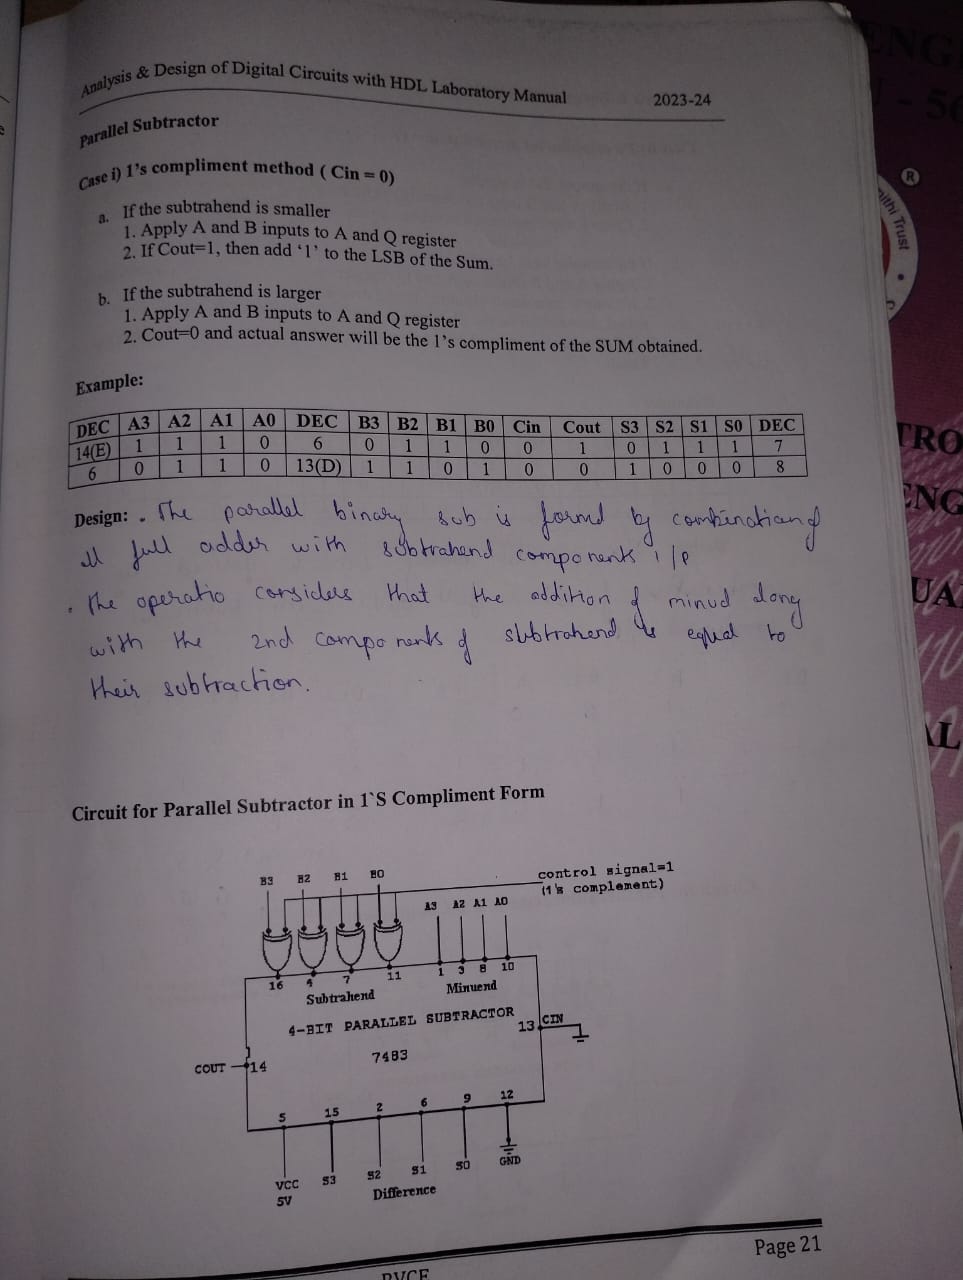 Analysis & Design of Digital Circuits with HDL Laboratory Manual 2023-24
Parallel Subtractor
Case i) 1's compliment method ( Cin = 0)
a. If the subtrahend is smaller
1. Apply A and B inputs to A and Q register
2. If Cout=1, then add '1' to the LSB of the Sum.
b. If the subtrahend is larger
1. Apply A and B inputs to A and Q register
2. Cout=0 and actual answer will be the 1's compliment of the SUM obtained.
Example:
DEC A3 A2 A1 A0 DEC B3 B2 B1 B0 Cin Cout S3 S2 S1 S0 DEC
14(E) 1 1 1 0 6 0 1 1 0 0 1 0 1 1 1 7
6 0 1 1 0 13(D) 1 1 0 1 0 0 1 0 0 0 8
Design: . The parallel binary sub is formd by combination of
full adder with subtrahend components i/p
. The operatio considers that the addition of minud along
with the 2nd components of subtrahend is equal to
their subtraction.
Circuit for Parallel Subtractor in 1`S Compliment Form
B3 B2 B1 B0
control signal=1
(1's complement)
A3 A2 A1 A0
16 4 7 11 1 3 8 10
Subtrahend Minuend
4-BIT PARALLEL SUBTRACTOR
13 CIN
7483
COUT 14
5 15 2 6 9 12
VCC S3 S2 S1 S0 GND
5V Difference
Page 21
RVCE
ENG
- 56
®
ithi Trust
TRO
ENG
UA
AL